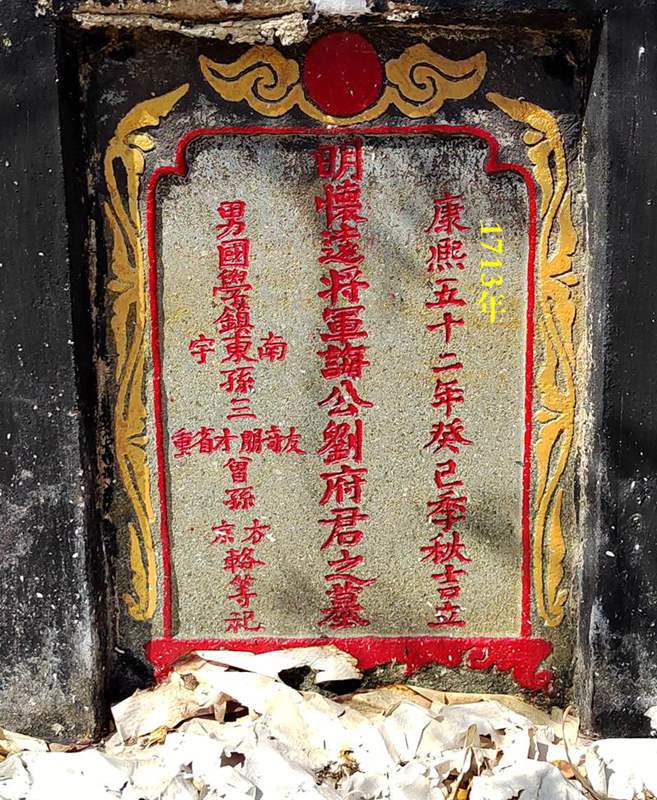 1713年
康熙五十二年癸巳季秋吉立
明懷遠将軍誨公劉府君之墓
男國學鎮南東宇孫三友奇朋才省重曾孫方京輅等祀